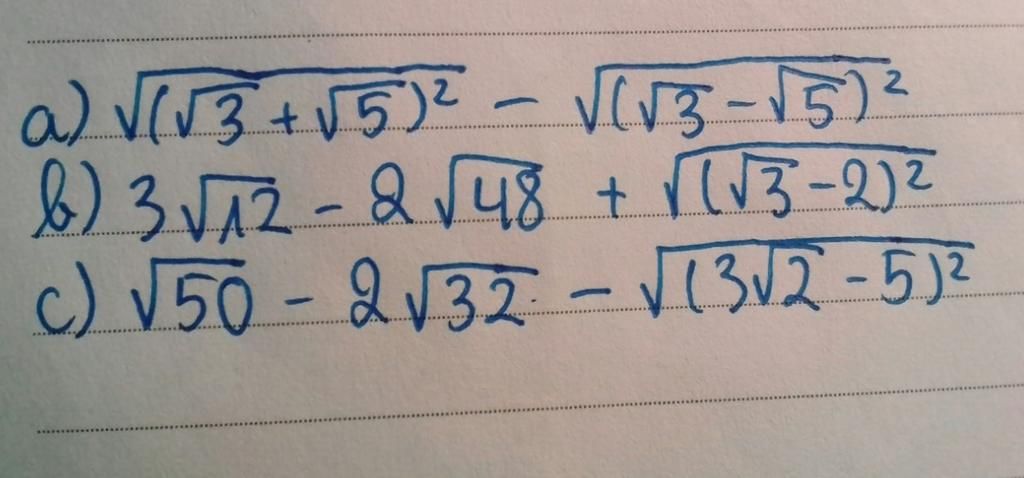 a) √(√3 + √5)² - √(√3 - √5)²
b) 3√12 - 2√48 + √(√3 - 2)²
c) √50 - 2√32 - √(3√2 - 5)²